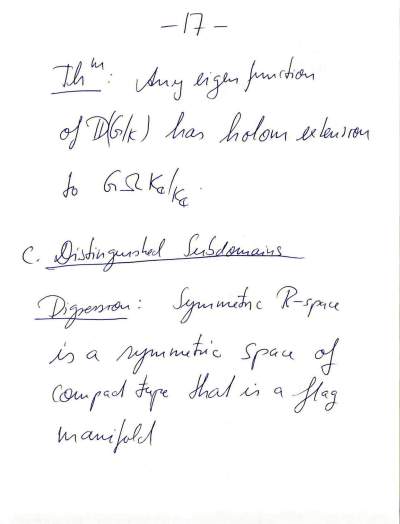 -17-
Thm: Any eigenfunction
of D(G/K) has holom extension
to GΩK_C/K_C.
C. Distinguished Subdomains
Digression: Symmetric R-space
is a symmetric space of
compact type that is a flag
manifold